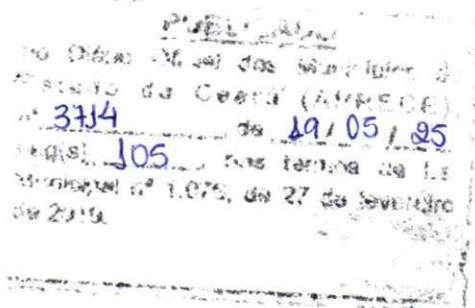 PUBLICADO
no Diário Oficial dos Municípios do
Estado do Ceará (APRECE)
nº 3714 de 19/05/25
105 nos termos da Lei
Municipal nº 1.075, de 27 de fevereiro
de 2019.